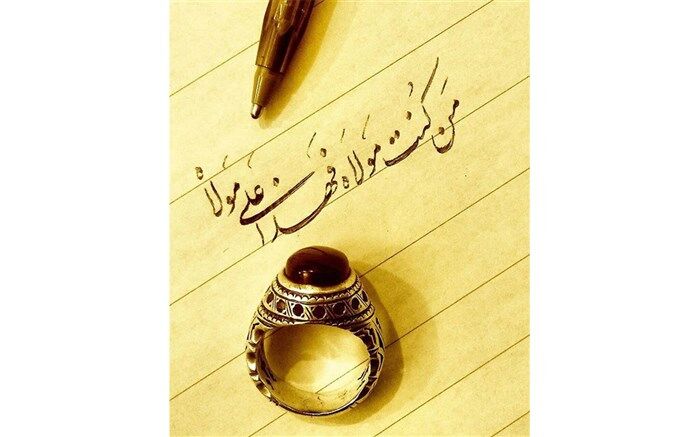 مَن كُنت مَولَاه فَهَذا عَلي مَولَاهُ